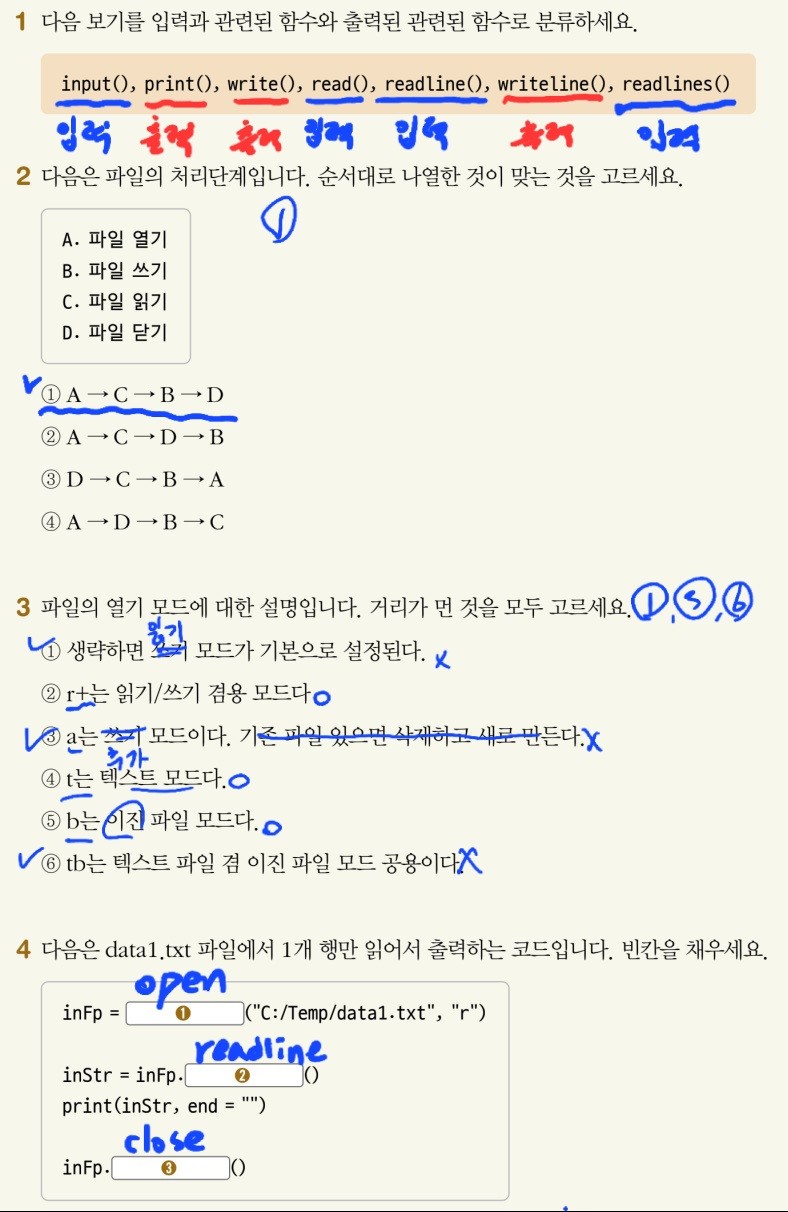 1 다음 보기를 입력과 관련된 함수와 출력된 관련된 함수로 분류하세요.
input(), print(), write(), read(), readline(), writeline(), readlines()
입력 출력 출력 입력 입력 출력 입력
2 다음은 파일의 처리단계입니다. 순서대로 나열한 것이 맞는 것을 고르세요.
①
A. 파일 열기
B. 파일 쓰기
C. 파일 읽기
D. 파일 닫기
① A → C → B → D
② A → C → D → B
③ D → C → B → A
④ A → D → B → C
3 파일의 열기 모드에 대한 설명입니다. 거리가 먼 것을 모두 고르세요. ①, ⑤, ⑥
읽기
① 생략하면 쓰기 모드가 기본으로 설정된다. x
② r+는 읽기/쓰기 겸용 모드다 o
③ a는 쓰기 모드이다. 기존 파일 있으면 삭제하고 새로 만든다. x
추가
④ t는 텍스트 모드다. o
⑤ b는 이진 파일 모드다. o
⑥ tb는 텍스트 파일 겸 이진 파일 모드 공용이다. x
4 다음은 data1.txt 파일에서 1개 행만 읽어서 출력하는 코드입니다. 빈칸을 채우세요.
open
inFp = ❶ ("C:/Temp/data1.txt", "r")
readline
inStr = inFp. ❷ ()
print(inStr, end = "")
close
inFp. ❸ ()